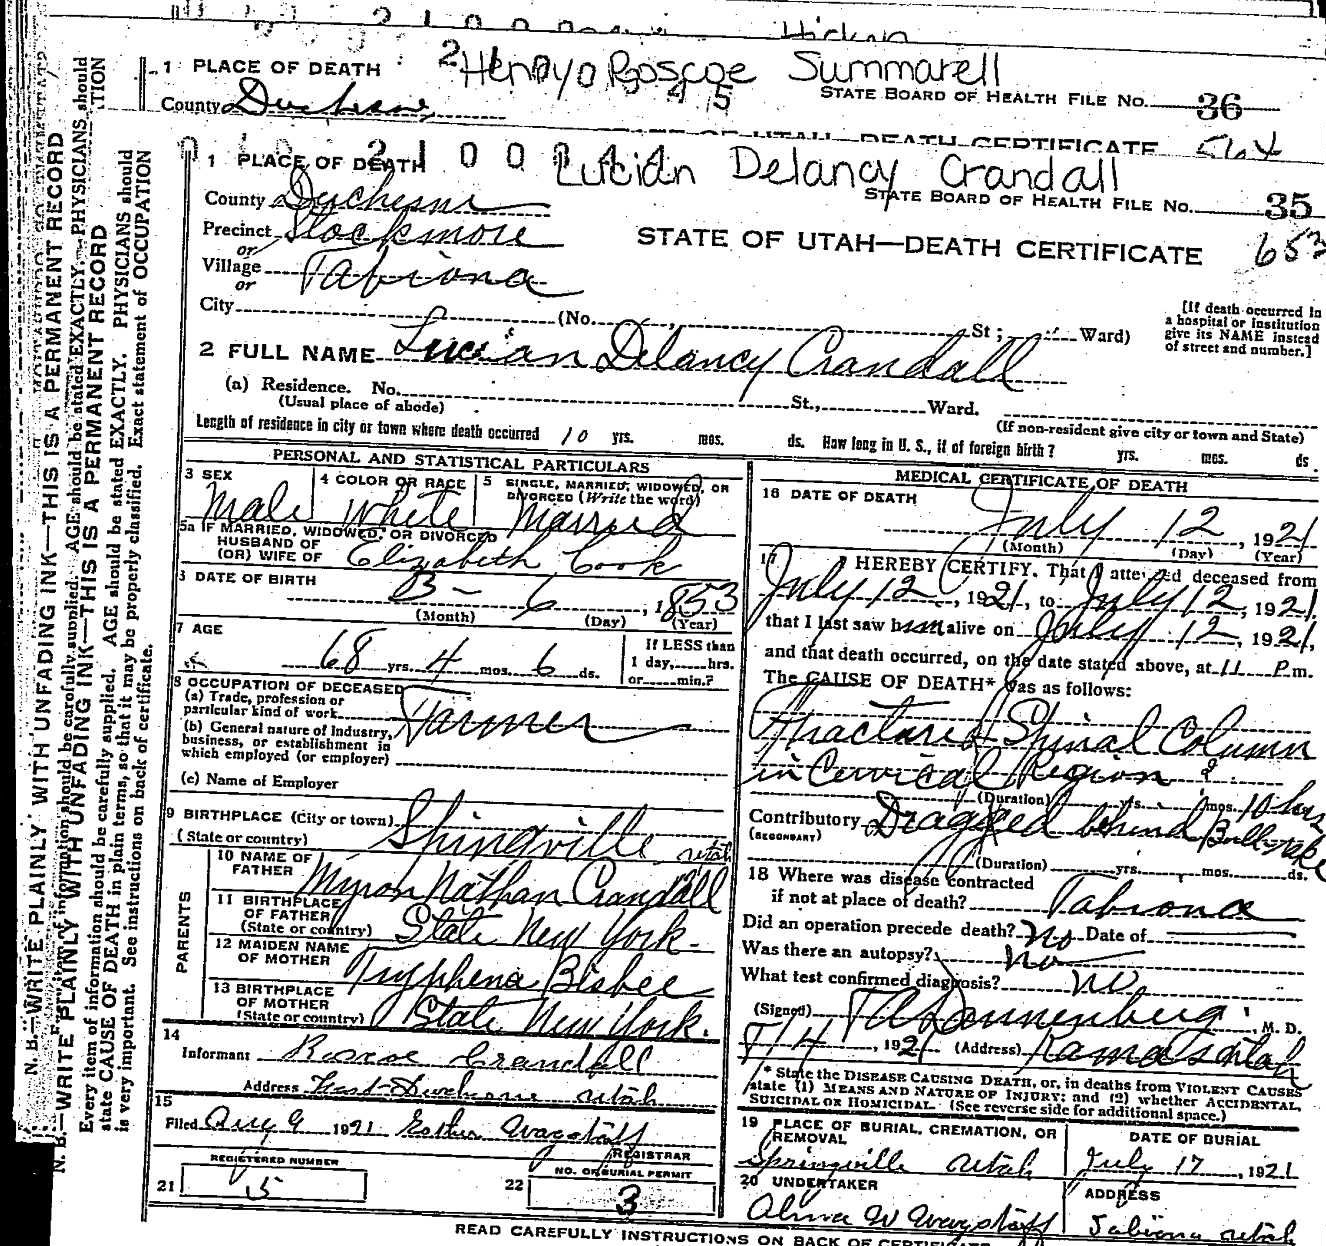 Hicken
1 PLACE OF DEATH
Henry Roscoe Summarell
STATE BOARD OF HEALTH FILE No. 36
County Duchesne
DEATH CERTIFICATE 564
1 PLACE OF DEATH
2 1 0 0
Lucian Delancy Crandall
County Duchesne
STATE BOARD OF HEALTH FILE No. 35
Precinct Stockmore
or
STATE OF UTAH—DEATH CERTIFICATE 653
Village Tabiona
or
City (No. St; Ward)
[If death occurred in
a hospital or institution
give its NAME instead
of street and number.]
2 FULL NAME Lucian Delancy Crandall
(a) Residence. No. St., Ward.
(Usual place of abode)
(If non-resident give city or town and State)
Length of residence in city or town where death occurred 10 yrs. mos. ds. How long in U. S., if of foreign birth? yrs. mos. ds.
PERSONAL AND STATISTICAL PARTICULARS
3 SEX
Male
4 COLOR OR RACE
White
5 SINGLE, MARRIED, WIDOWED, OR
DIVORCED (Write the word)
Married
5a IF MARRIED, WIDOWED, OR DIVORCED
HUSBAND OF
(OR) WIFE OF
Elizabeth Cook
DATE OF BIRTH
3 - 6, 1853
(Month) (Day) (Year)
7 AGE
68 yrs. 4 mos. 6 ds.
If LESS than
1 day, hrs.
or min.?
8 OCCUPATION OF DECEASED
(a) Trade, profession or
particular kind of work
Farmer
(b) General nature of Industry,
business, or establishment in
which employed (or employer)
(c) Name of Employer
9 BIRTHPLACE (City or town) Springville Utah
(State or country)
PARENTS
10 NAME OF
FATHER
Myron Nathan Crandall
11 BIRTHPLACE
OF FATHER
(State or country)
State New York
12 MAIDEN NAME
OF MOTHER
Tryphena Bisbee
13 BIRTHPLACE
OF MOTHER
(State or country)
State New York.
14
Informant Roscoe Crandall
Address Duchesne Utah
15
Filed Aug 9 1921 Esther Wagstaff
REGISTRAR
REGISTERED NUMBER
21 5
NO. OF BURIAL PERMIT
22 3
MEDICAL CERTIFICATE OF DEATH
16 DATE OF DEATH
July 12, 1921
(Month) (Day) (Year)
17 I HEREBY CERTIFY, That I attended deceased from
July 12, 1921, to July 12, 1921,
that I last saw him alive on July 12, 1921,
and that death occurred, on the date stated above, at 11 P m.
The CAUSE OF DEATH* was as follows:
Fractured Spinal Column
in Cervical Region
(Duration) yrs. mos. 10 hrs
Contributory Dragged behind Bull-rake
(SECONDARY)
(Duration) yrs. mos. ds.
18 Where was disease contracted
if not at place of death? Tabiona
Did an operation precede death? No Date of
Was there an autopsy? No
What test confirmed diagnosis? No
(Signed) T A Dannenberg, M. D.
7/14, 1921 (Address) Kamas Utah
* State the DISEASE CAUSING DEATH, or, in deaths from VIOLENT CAUSES
state (1) MEANS AND NATURE OF INJURY; and (2) whether ACCIDENTAL,
SUICIDAL OR HOMICIDAL. (See reverse side for additional space.)
19 PLACE OF BURIAL, CREMATION, OR
REMOVAL
Springville Utah
DATE OF BURIAL
July 17, 1921
20 UNDERTAKER
Alma W Wagstaff
ADDRESS
Tabiona Utah
READ CAREFULLY INSTRUCTIONS ON BACK OF
N. B.—WRITE PLAINLY WITH UNFADING INK—THIS IS A PERMANENT RECORD
N. B.—WRITE PLAINLY WITH UNFADING INK—THIS IS A PERMANENT RECORD
Every item of information should be carefully supplied. AGE should be stated EXACTLY. PHYSICIANS should
state CAUSE OF DEATH in plain terms, so that it may be properly classified. Exact statement of OCCUPATION
is very important. See instructions on back of certificate.